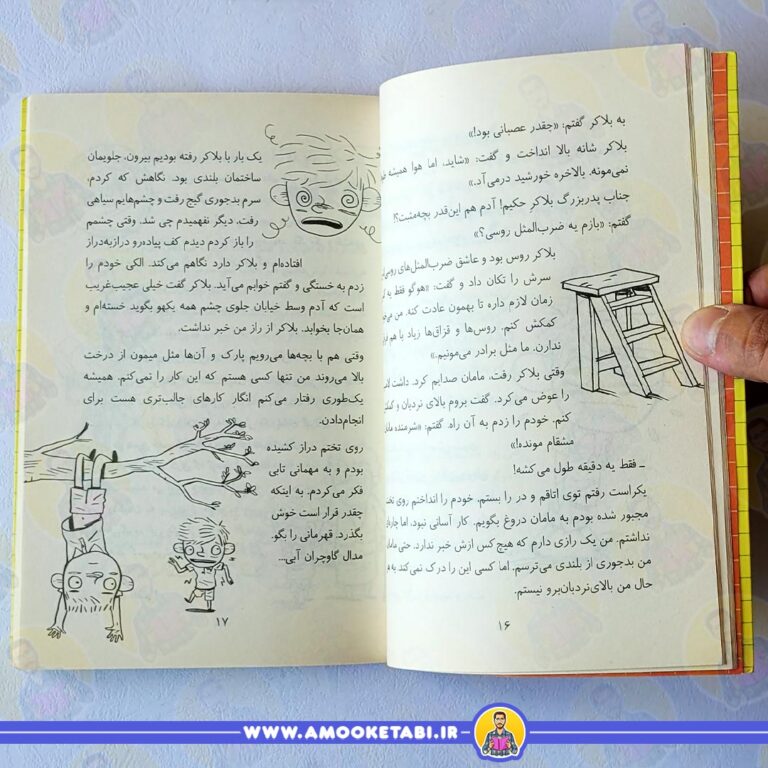 به بلاکر گفتم: «چقدر عصبانی بود!»
بلاکر شانه بالا انداخت و گفت: «شاید، اما هوا همیشه
نمی‌مونه. بالاخره خورشید درمی‌آد.»
جناب پدربزرگ بلاکر حکیم! آدم هم این‌قدر بچه‌مثبت؟!
گفتم: «بازم یه ضرب‌المثل روسی؟»
بلاکر روس بود و عاشق ضرب‌المثل‌های روسی
سرش را تکان داد و گفت: «هوگو فقط یه
زمان لازم داره تا بهمون عادت کنه. من
کمکش کنم. روس‌ها و قزاق‌ها زیاد با هم
ندارن. ما مثل برادر می‌مونیم.»
وقتی بلاکر رفت، مامان صدایم کرد. داشت
را عوض می‌کرد. گفت بروم بالای نردبان و
کنم. خودم را زدم به آن راه. گفتم: «شرمنده
مشقام مونده!»
ـ فقط یه دقیقه طول می‌کشه!
یکراست رفتم توی اتاقم و در را بستم. خودم را انداختم روی
مجبور شده بودم به مامان دروغ بگویم. کار آسانی نبود. اما
نداشتم. من یک رازی دارم که هیچ‌کس ازش خبر ندارد. حتی
من بدجوری از بلندی می‌ترسم. اما کسی این را درک نمی‌کند
حال من بالای‌نردبان‌برو نیستم.
۱۶
یک بار با بلاکر رفته بودیم بیرون. جلویمان
ساختمان بلندی بود. نگاهش که کردم،
سرم بدجوری گیج رفت و چشم‌هایم سیاهی
رفت. دیگر نفهمیدم چی شد. وقتی چشمم
را باز کردم دیدم کف پیاده‌رو درازبه‌دراز
افتاده‌ام و بلاکر دارد نگاهم می‌کند. الکی خودم را
زدم به خستگی و گفتم خوابم می‌آید. بلاکر گفت خیلی عجیب‌غریب
است که آدم وسط خیابان جلوی چشم همه یکهو بگوید خسته‌ام و
همان‌جا بخوابد. بلاکر از راز من خبر نداشت.
وقتی هم با بچه‌ها می‌رویم پارک و آن‌ها مثل میمون از درخت
بالا می‌روند من تنها کسی هستم که این کار را نمی‌کنم. همیشه
یک‌طوری رفتار می‌کنم انگار کارهای جالب‌تری هست برای
انجام‌دادن.
روی تختم دراز کشیده
بودم و به مهمانی تابی
فکر می‌کردم. به اینکه
چقدر قرار است خوش
بگذرد. قهرمانی را بگو.
مدال گاوچران آبی...
۱۷
WWW.AMOOKETABI.IR